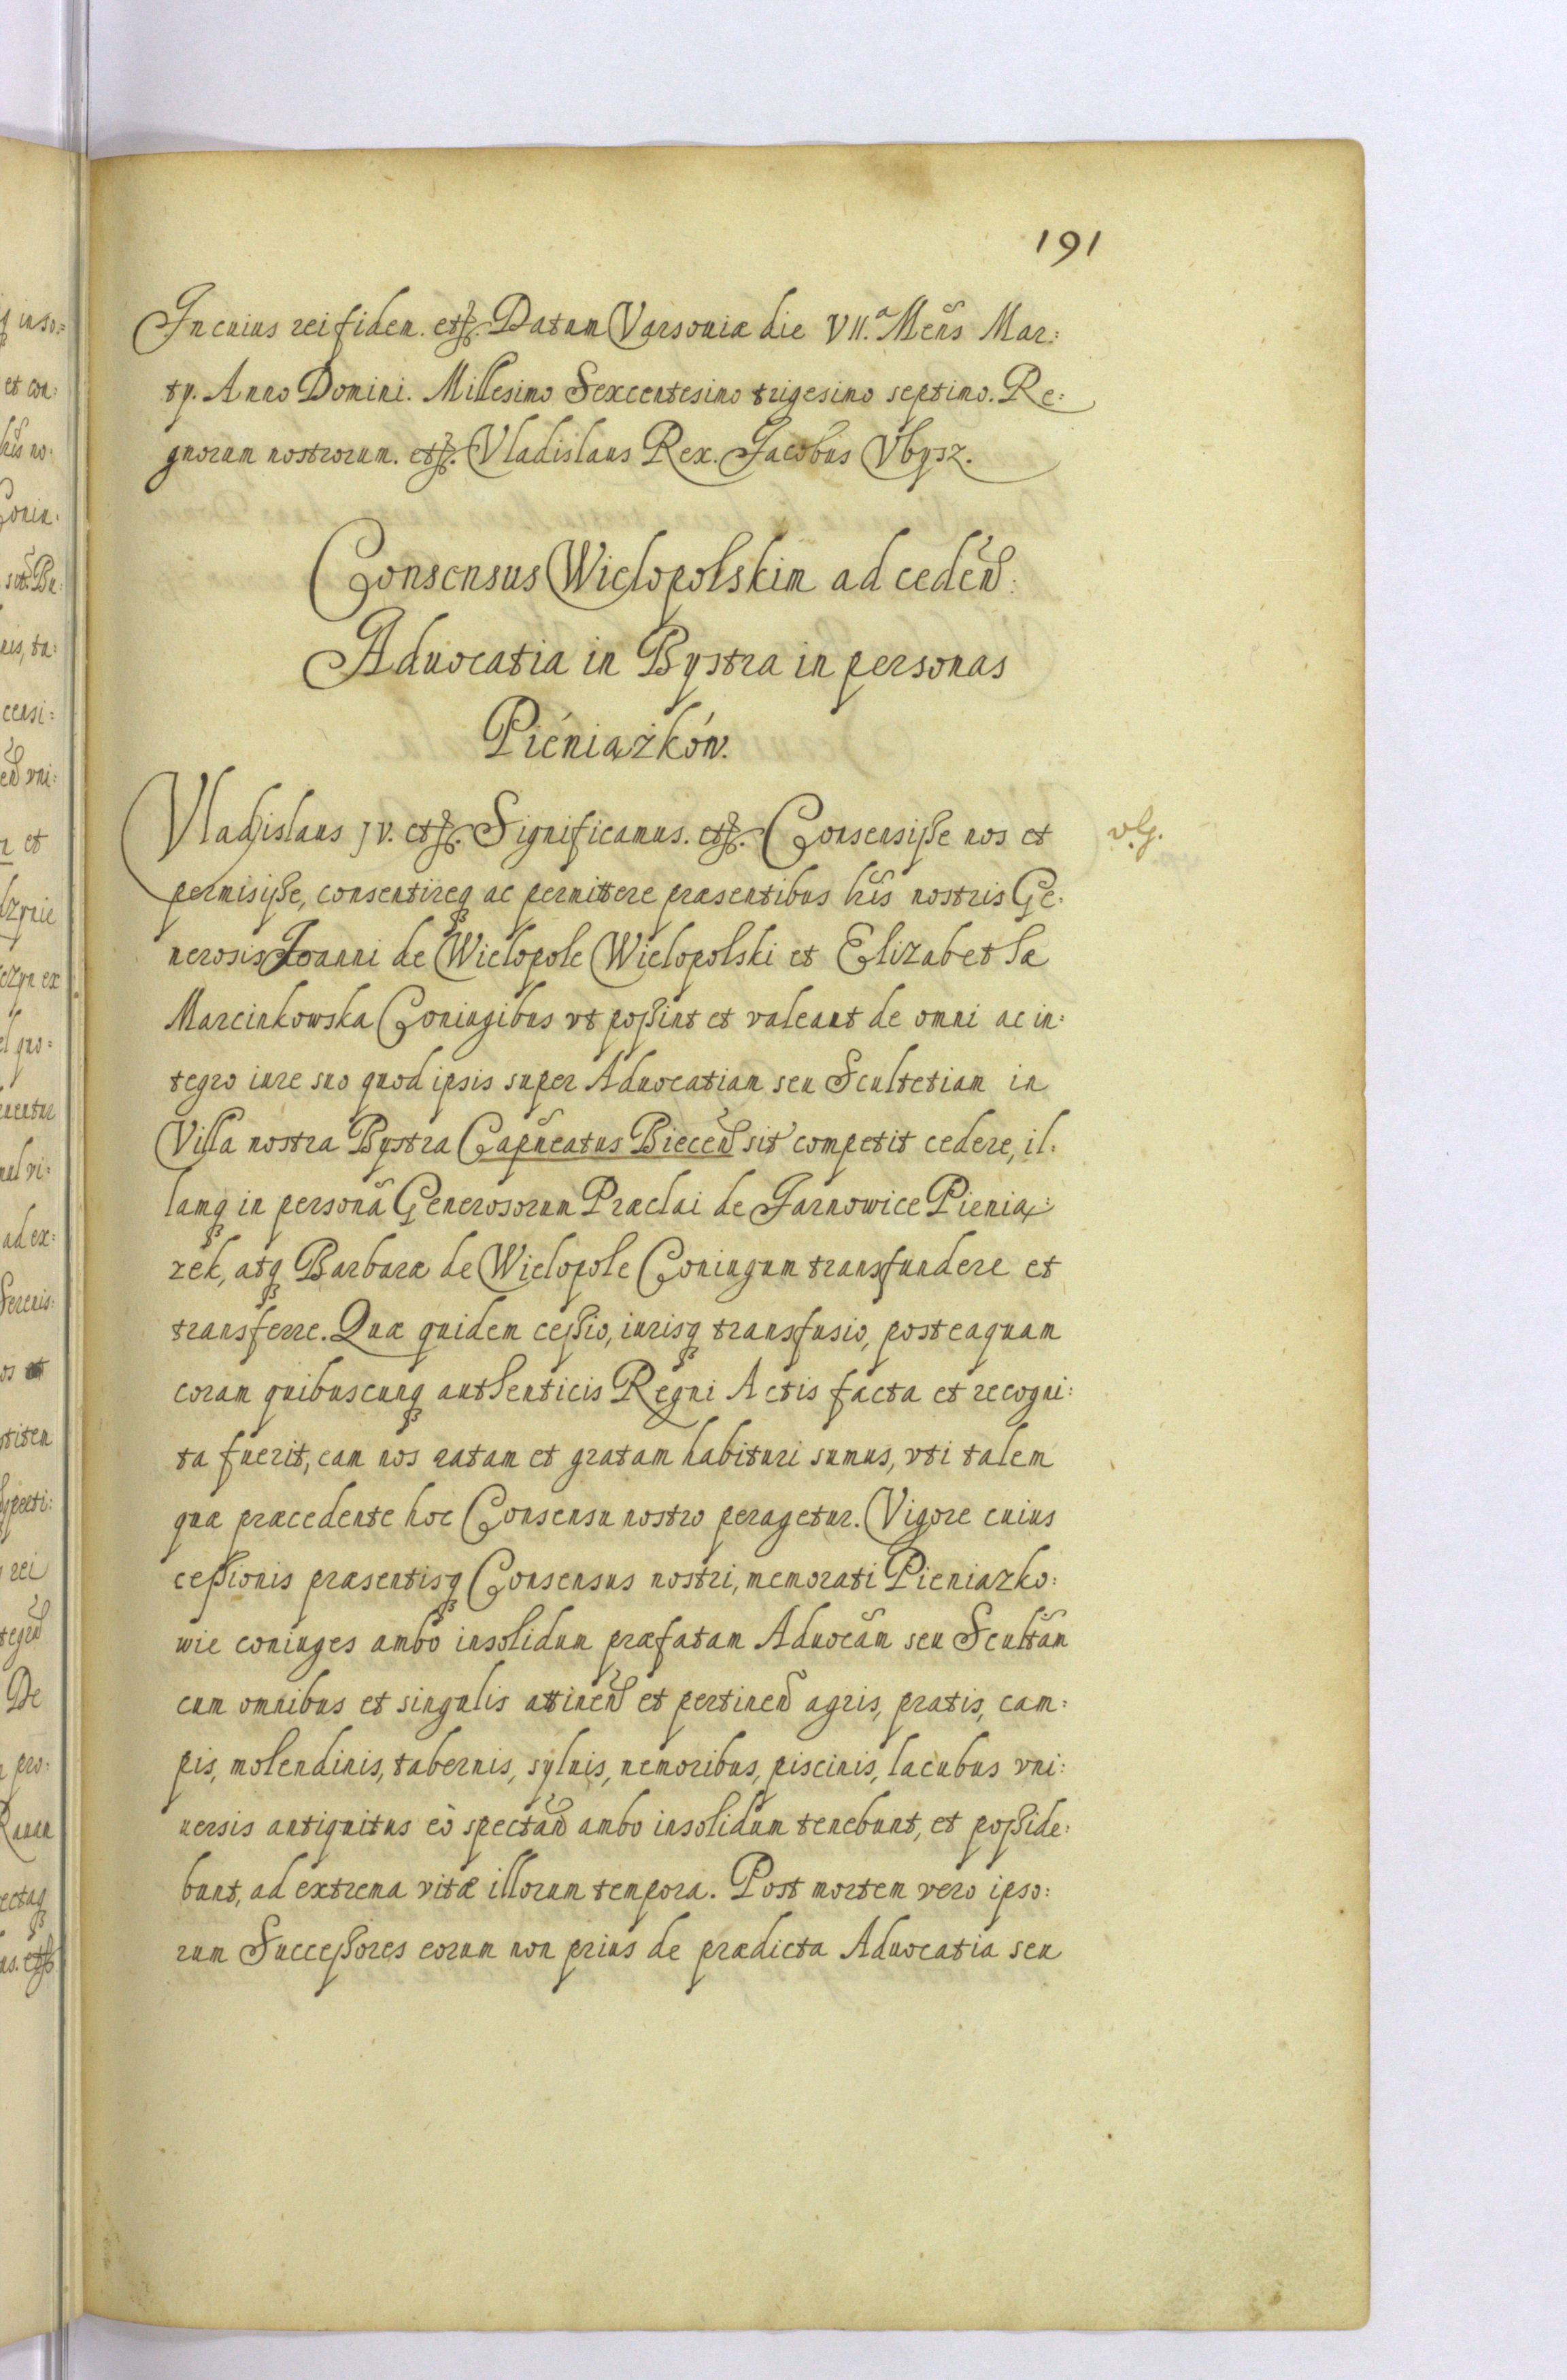 191
In cuius rei fidem. etc. Datum Varsoviæ die VII.ª Meñs Mar:
tÿ. Anno Domini. Millesimo Sexcentesimo trigesimo septimo. Re:
gnorum nostrorum. etc. Vladislaus Rex. Jacobus Vbysz.
Consensus Wielopolskim ad cedeñd:
Aduocatia in Bystra in personas
Piéniążków.
Vladislaus IV. etc. Significamus. etc. Consensisse nos et
permisisse, consentireq₃ ac permittere præsentibus lr̃is nostris Ge:
nerosis Joanni de Wielopole Wielopolski et Elizabethæ
Marcinkowska Coniugibus vt possint et valeant de omni ac in:
tegro iure suo quod ipsis super Aduocatiam seu Scultetiam in
Villa nostra Bystra Capñeatus Bieceñ sit̃ competit cedere, il:
lamq₃ in personã Generosorum Præclai de Jarnowice Pienią:
zek, atq₃ Barbaræ de Wielopole Coniugum transfundere et
transferre. Quæ quidem cessio, iurisq₃ transfusio, posteaquam
coram quibuscunq₃ authenticis Regni Actis facta et recogni:
ta fuerit, eam nos ratam et gratam habituri sumus, vti talem
quæ præcedente hoc Consensu nostro peragetur. Vigore cuius
cessionis præsentisq₃ Consensus nostri, memorati Pieniazko:
wie coniuges ambo insolidum præfatam Aduocãm seu Scultãm
cum omnibus et singulis attineñ et pertineñ agris, pratis, cam:
pis, molendinis, tabernis, syluis, nemoribus, piscinis, lacubus vni:
uersis antiquitus eò spectañ ambo insolidum tenebunt, et posside:
bunt, ad extrema vitæ illorum tempora. Post mortem vero ipso:
rum Successores eorum non prius de prædicta Aduocatia seu